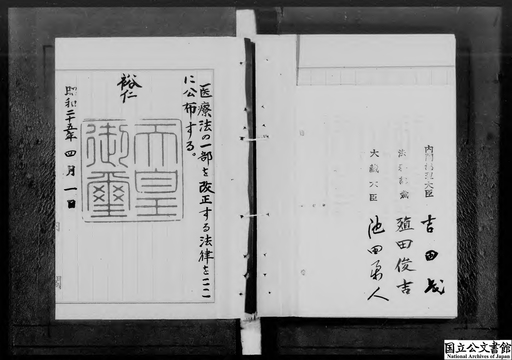 内閣総理大臣 吉田茂
法務総裁 殖田俊吉
大蔵大臣 池田勇人
医療法の一部を改正する法律をここ
に公布する。
裕仁
天皇
御璽
昭和二十五年四月一日
国立公文書館
National Archives of Japan